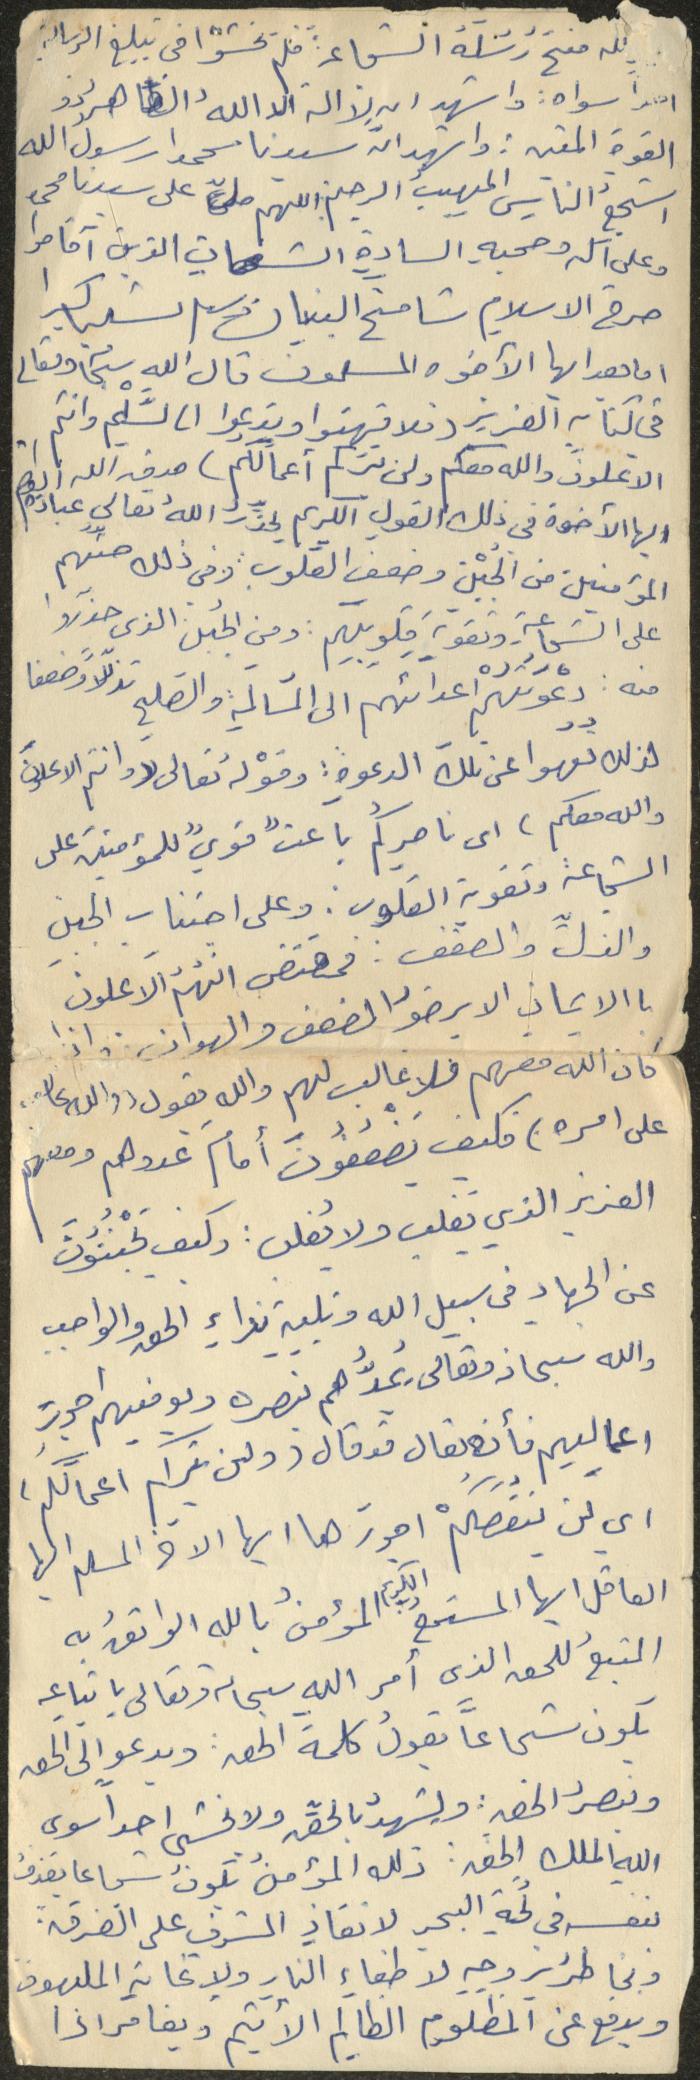 لله منح رُسُلَهُ الشجاعة: فلم يخشوْا في تبليغ الرسالة
احداً سواه: واشهد ان لا اله الا اللهُ الظاهرُ ذو
القوةِ المتين: واشهد انّ سيدنا محمدا رسولُ الله
اشجعُ الناسِ المهيبُ الرحيمُ اللهم صلِّ على سيدنا محمد
وعلى آله وصحبهِ السادةِ الشجعان الذين أقاموا
صرح الاسلام شامخ البنيان وسلم تسليما كثيرا
اما بعد ايها الأخوه المسلمون قال اللهِ سبحانه وتعالى
في كتابه العزيز (فلا تهنوا وتدعوا الى السَّلْمِ وانتم
الاعلونَ والله معكم ولن يتركم أعمالَكُم) صدق الله العظيم
ايها الأخوة في ذلك القول الكريم يُحَذِّرُ اللهُ تعالى عبادَهُ
المؤمنين من الجُبْنِ وضعف القلوب: وفي ذلك حثّهم
على الشجاعةِ وتقويةَ قلوبِهِم: ومن الجُبْنِ الذي حذروا
منه: دعْوَتُهُمْ اعدائهم الى المسالمةِ والصلحِ تذلّلاً وضعفا
لذلك نُهوا عن تلكَ الدعوةِ: وقوْله تعالى (وانتم الاعلونَ
والله معكم) اى ناصركُم باعثٌ قويٌ للمؤمنين على
الشجاعة وتقوية القلوب: وعلى اجتناب الجبنِ
والذلِّ والضعف: فمقتضى انّهُمُ الاعلون
با الايمانِ الا يرضوْا الضعف والهوان: واذا
كان الله معهم فلا غالب لهم والله يقول (والله غالبٌ
على امره) فكيف يَضْعُفُونَ أمامَ عدوهم ومعهم
العزيز الذي يَغلب ولا يُغلب: وكيف يَجْبُنُونَ
عن الجهادِ في سبيل الله وتلبيةِ نداءِ الحق والواجب
والله سبحانه وتعالى يُمِدُّهم بنصره ويوفيهم أجورَ
اعمالهم فأنه تعالى قد قال (ولن يتركم اعمالَكُم)
اى لن يَنْقُصَكُمْ اجورها ايها الاخ المسلم ايها
العاقل ايها المستمعُ الكريم المؤمنُ بالله الواثقُ به
المتبعُ للحق الذى أمر اللهِ سبحانه وتعالى باتباعهِ
يكون شجاعاً يقولُ كلمةَ الحق: ويدعو الى الحق
وينصرُ الحق: ويشهدُ بالحقِّ ولا يخشى احداً سوى
اللهِ الملك الحق: ذلك المؤمنُ يكونُ شجاعا يقذفُ
نفسه في لُجّةِ البحر لانقاذِ المشرفِ على الغرق:
ويخاطرُ بروحِهِ لاطفاءِ النارِ ولاغاثةِ الملهوف
ويدفع عن المظلومِ الظالمِ الأثيمِ ويغامر اذا